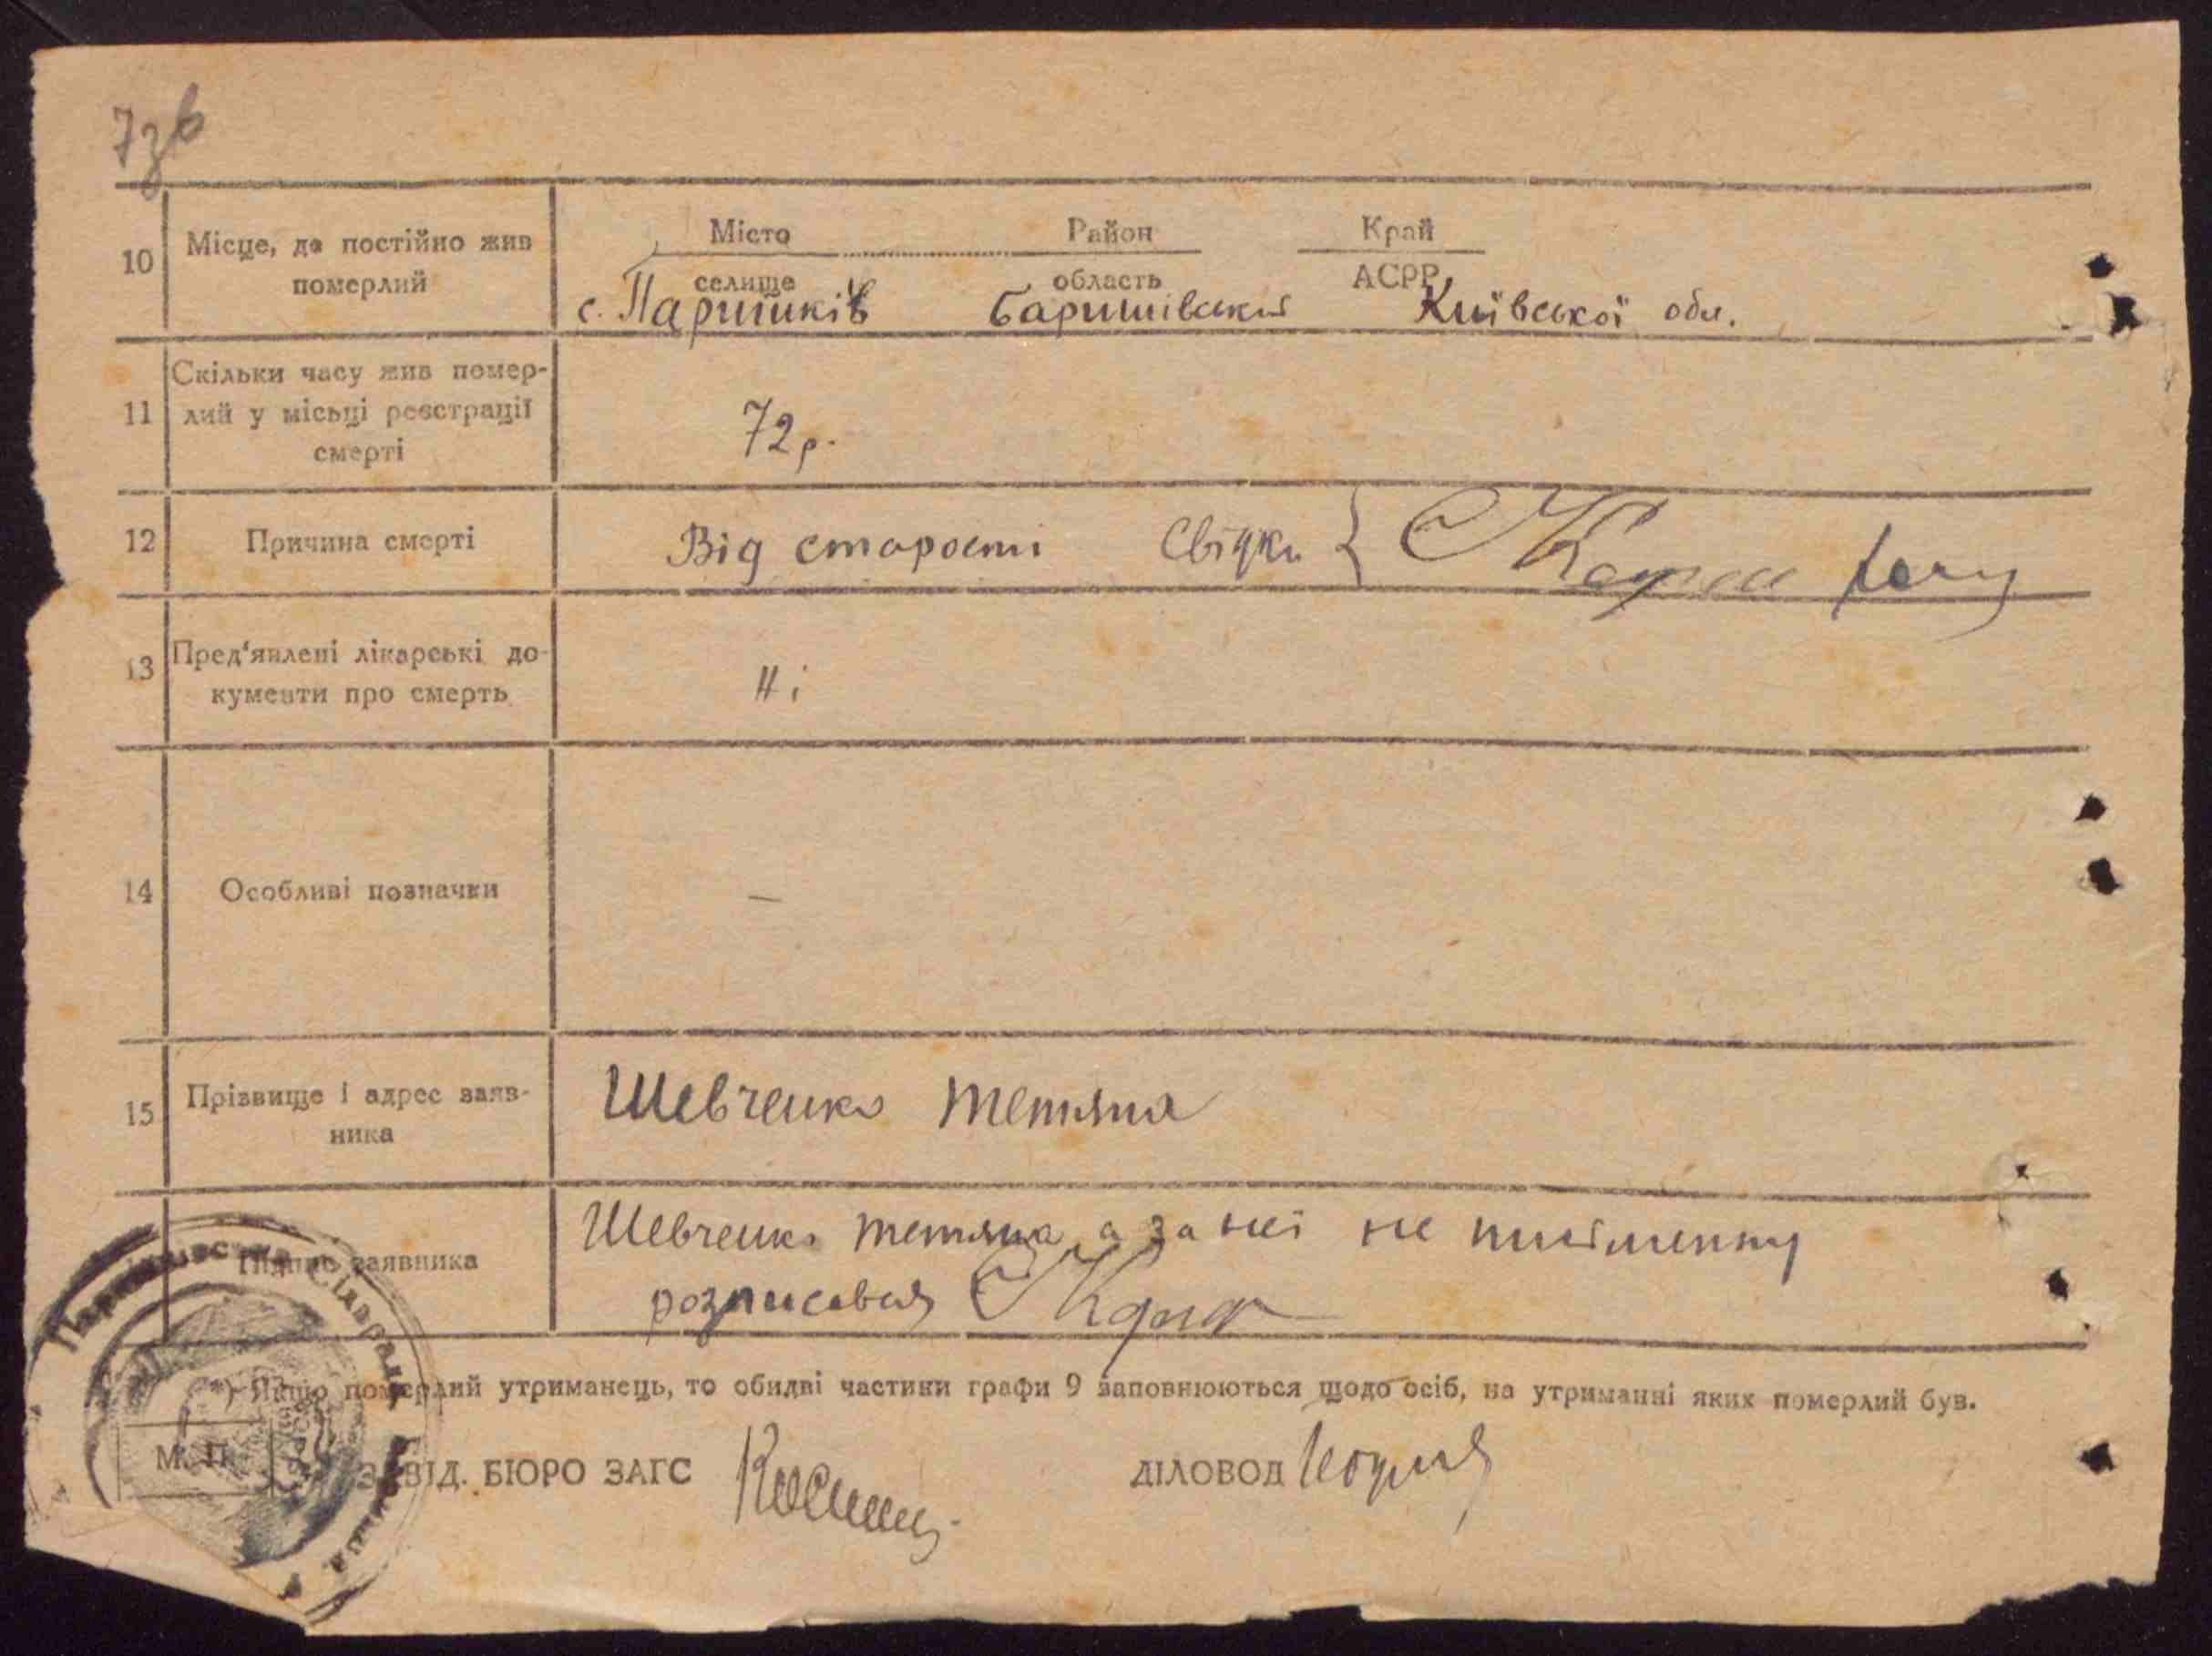 73в
Місто Район Край
10 Місце, де постійно жив померлий
селище область АСРР
с. Паришків Баришівський Київської обл.
11 Скільки часу жив помер-
лий у місьці реєстрації
смерті
72 р.
12 Причина смерті
Від старости Свідки {
13 Пред'явлені лікарські до-
кументи про смерть
Ні
14 Особливі позначки
—
15 Прізвище і адрес заяв-
ника
Шевченко Тетяна
Підпис заявника
Шевченко Тетяна а за неї не письменну
розписався
*) Якщо померлий утриманець, то обидві частини графи 9 заповнюються щодо осіб, на утриманні яких померлий був.
М. П.
ЗАВІД. БЮРО ЗАГС
ДІЛОВОД